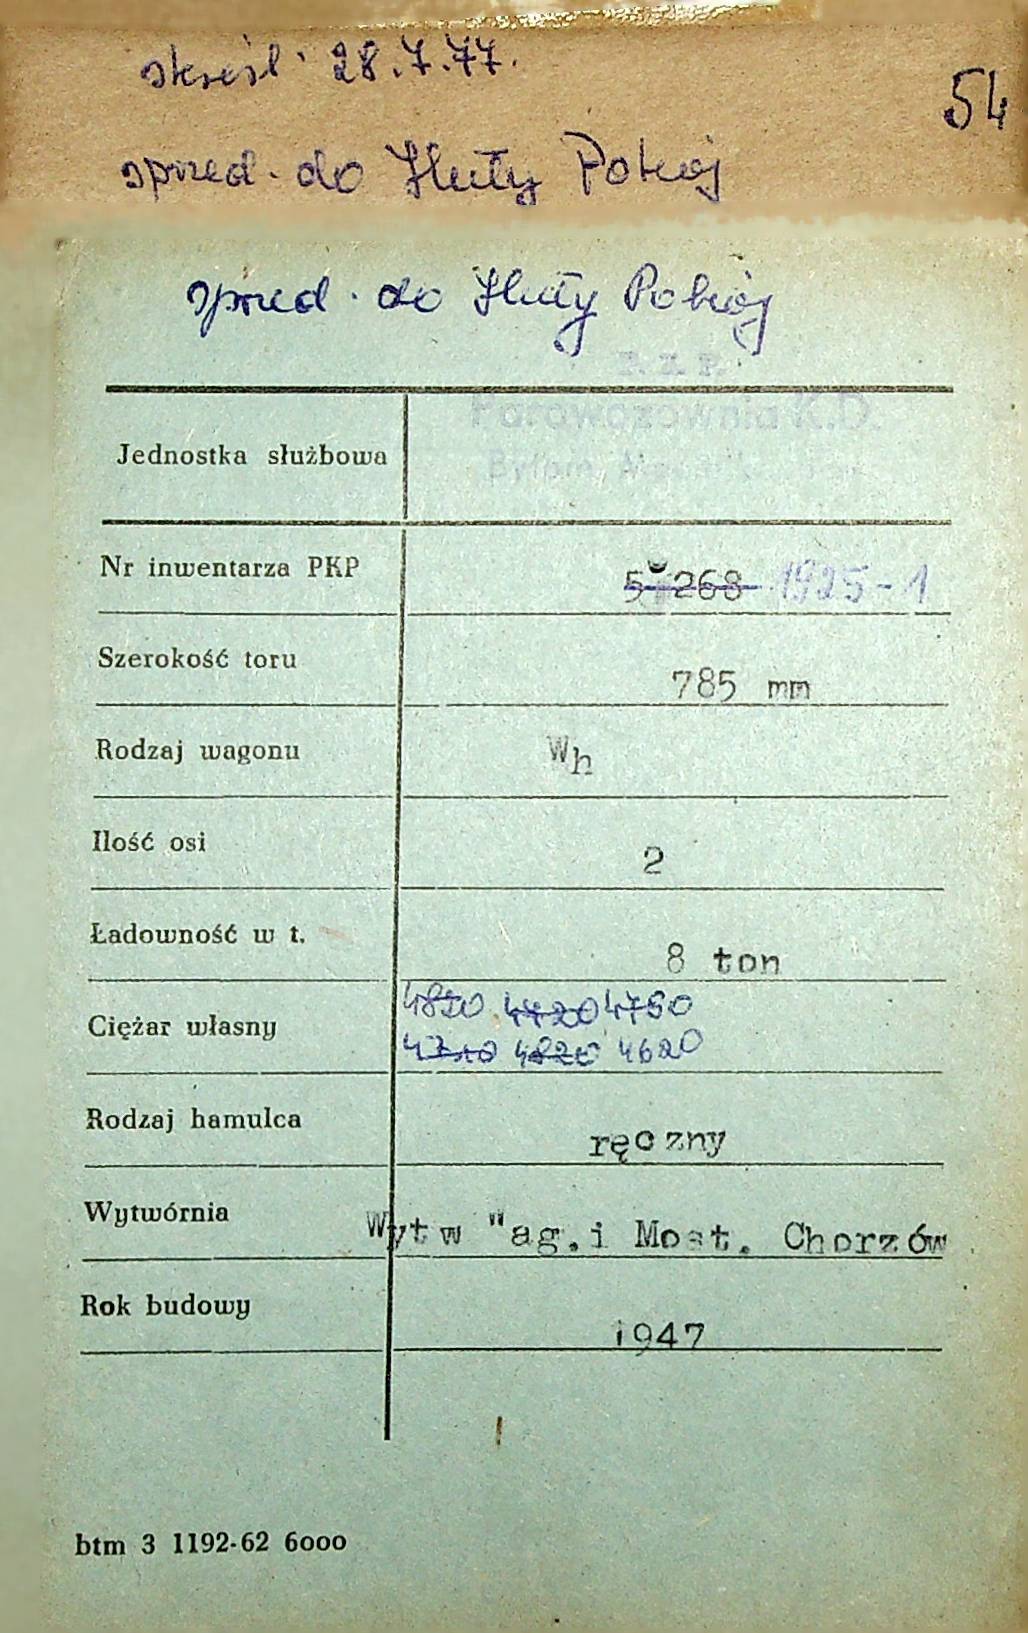 skreśl. 28.7.77.
54
sprzed. do Huty Pokój
sprzed. do Huty Pokój
P. K. P.
Parowozownia K.D.
Jednostka służbowa
Bytom
Nr inwentarza PKP 268 1925-1
Szerokość toru 785 mm
Rodzaj wagonu Wh
Ilość osi 2
Ładowność w t. 8 ton
4420 4750
Ciężar własny
4820 4620
Rodzaj hamulca ręczny
Wytwórnia Wytw "ag.i Most. Chorzów
Rok budowy 1947
btm 3 1192-62 6000